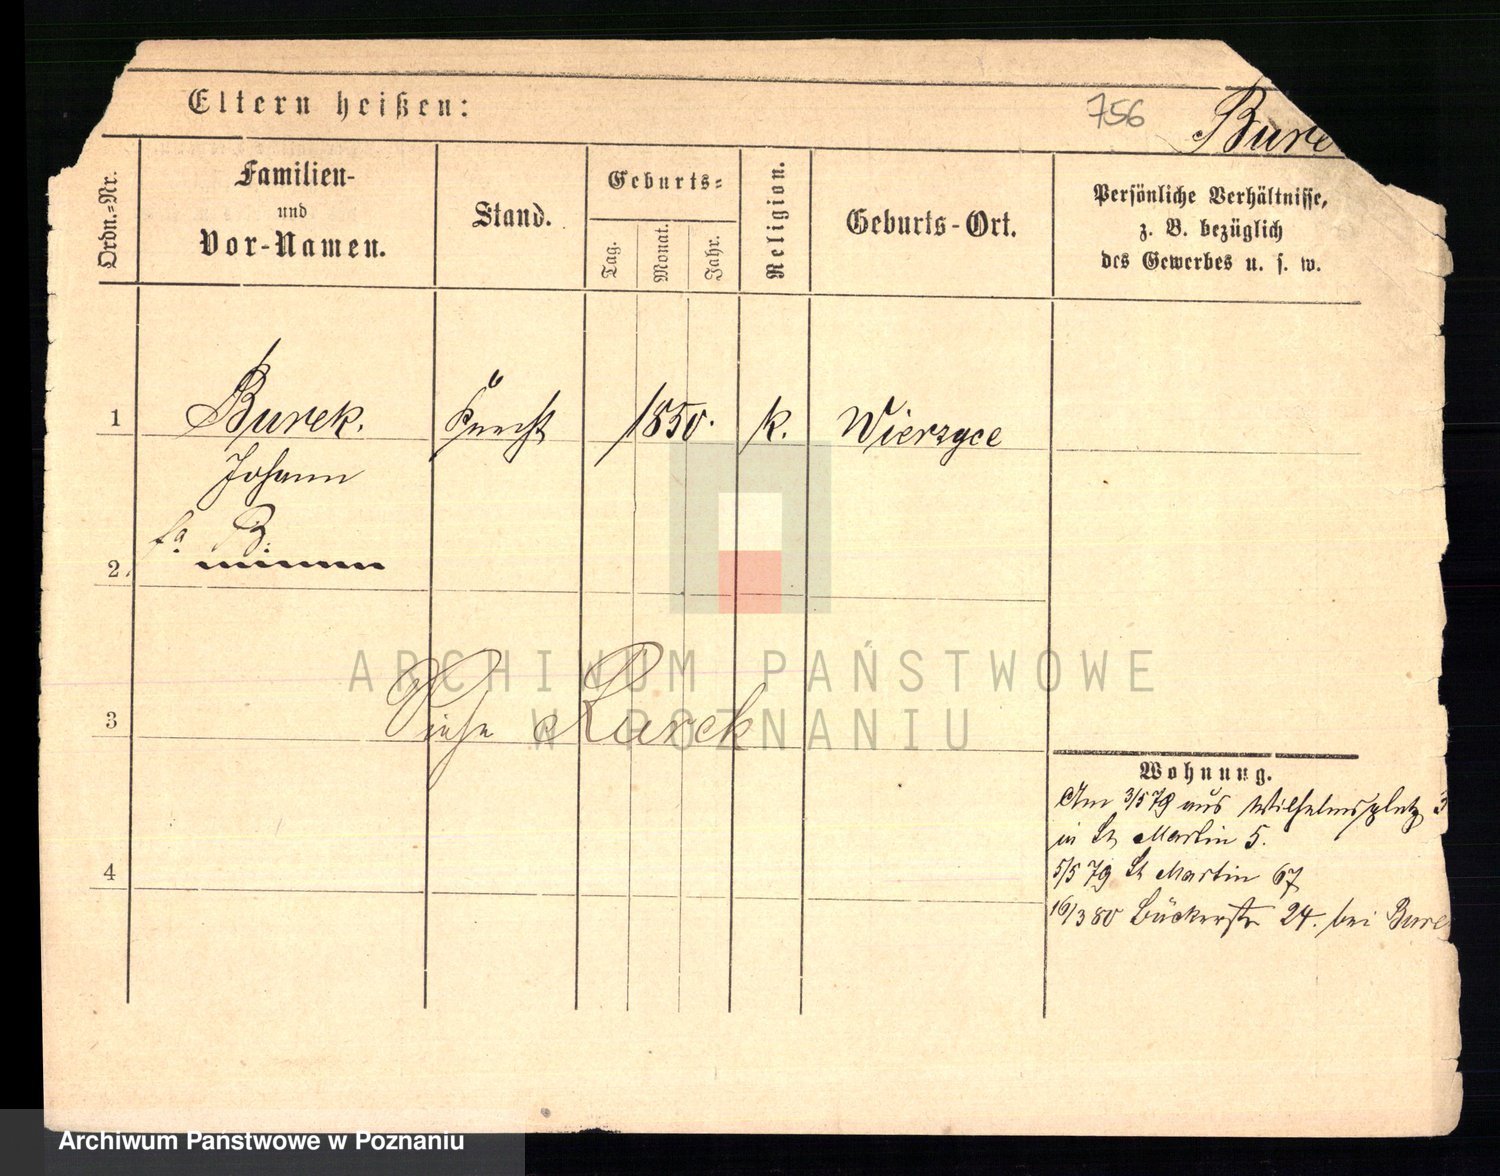 Eltern heißen:
756
Bure
Ordn.=Nr.
Familien-
und
Vor-Namen.
Stand.
Geburts=
Tag.
Monat.
Jahr.
Religion.
Geburts-Ort.
Persönliche Verhältnisse,
z. B. bezüglich
des Gewerbes u. s. w.
1
Burek.
Knecht
1850.
k.
Wierzyce
Johann
B.
2.
3
Siehe Kurek
Wohnung.
Am 3/5 79 aus Wilhelmsplatz 3
in St Martin 5.
4
5/5 79 St Martin 67
16/3 80 Bäckerstr 24. bei Bure
ARCHIWUM PAŃSTWOWE
W POZNANIU
Archiwum Państwowe w Poznaniu